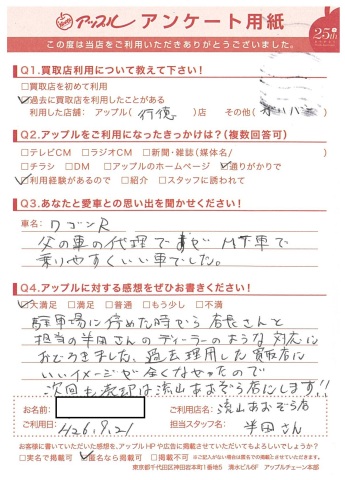 アップル アンケート用紙
25th
この度は当店をご利用いただきありがとうございました。
Q1.買取店利用について教えて下さい!
□買取店を初めて利用
☑過去に買取店を利用したことがある
利用した店舗: アップル( 行徳 )店 その他(
Q2.アップルをご利用になったきっかけは?(複数回答可)
□テレビCM □ラジオCM □新聞・雑誌(媒体名/ )
□チラシ □DM □アップルのホームページ ☑通りがかりで
☑利用経験があるので □紹介 □スタッフに誘われて
Q3.あなたと愛車との思い出を聞かせください!
車名: ワゴンR
父の車の代理で MT車で
乗りやすくいい車でした。
Q4.アップルに対する感想をぜひお書きください!
☑大満足 □満足 □普通 □もう少し □不満
駐車場に停めた時から 店長さんと
担当の半田さんのディーラーのような対応に
おどろきました。過去利用した買取店に
いいイメージが全くなかったので
次回も売却は流山おおぞら店にします!!
お名前:
ご利用店名: 流山おおぞら店
ご利用日: H26.9.21
担当スタッフ名: 半田さん
お客様に書いていただいた感想を、アップルHPや広告に掲載させていただいてもよろしいでしょうか?
□実名で掲載可 ☑匿名なら掲載可 □掲載不可 ※ご記入がない場合は匿名での掲載とさせていただきます。
東京都千代田区神田岩本町1番地5 清水ビル6F アップルチェーン本部